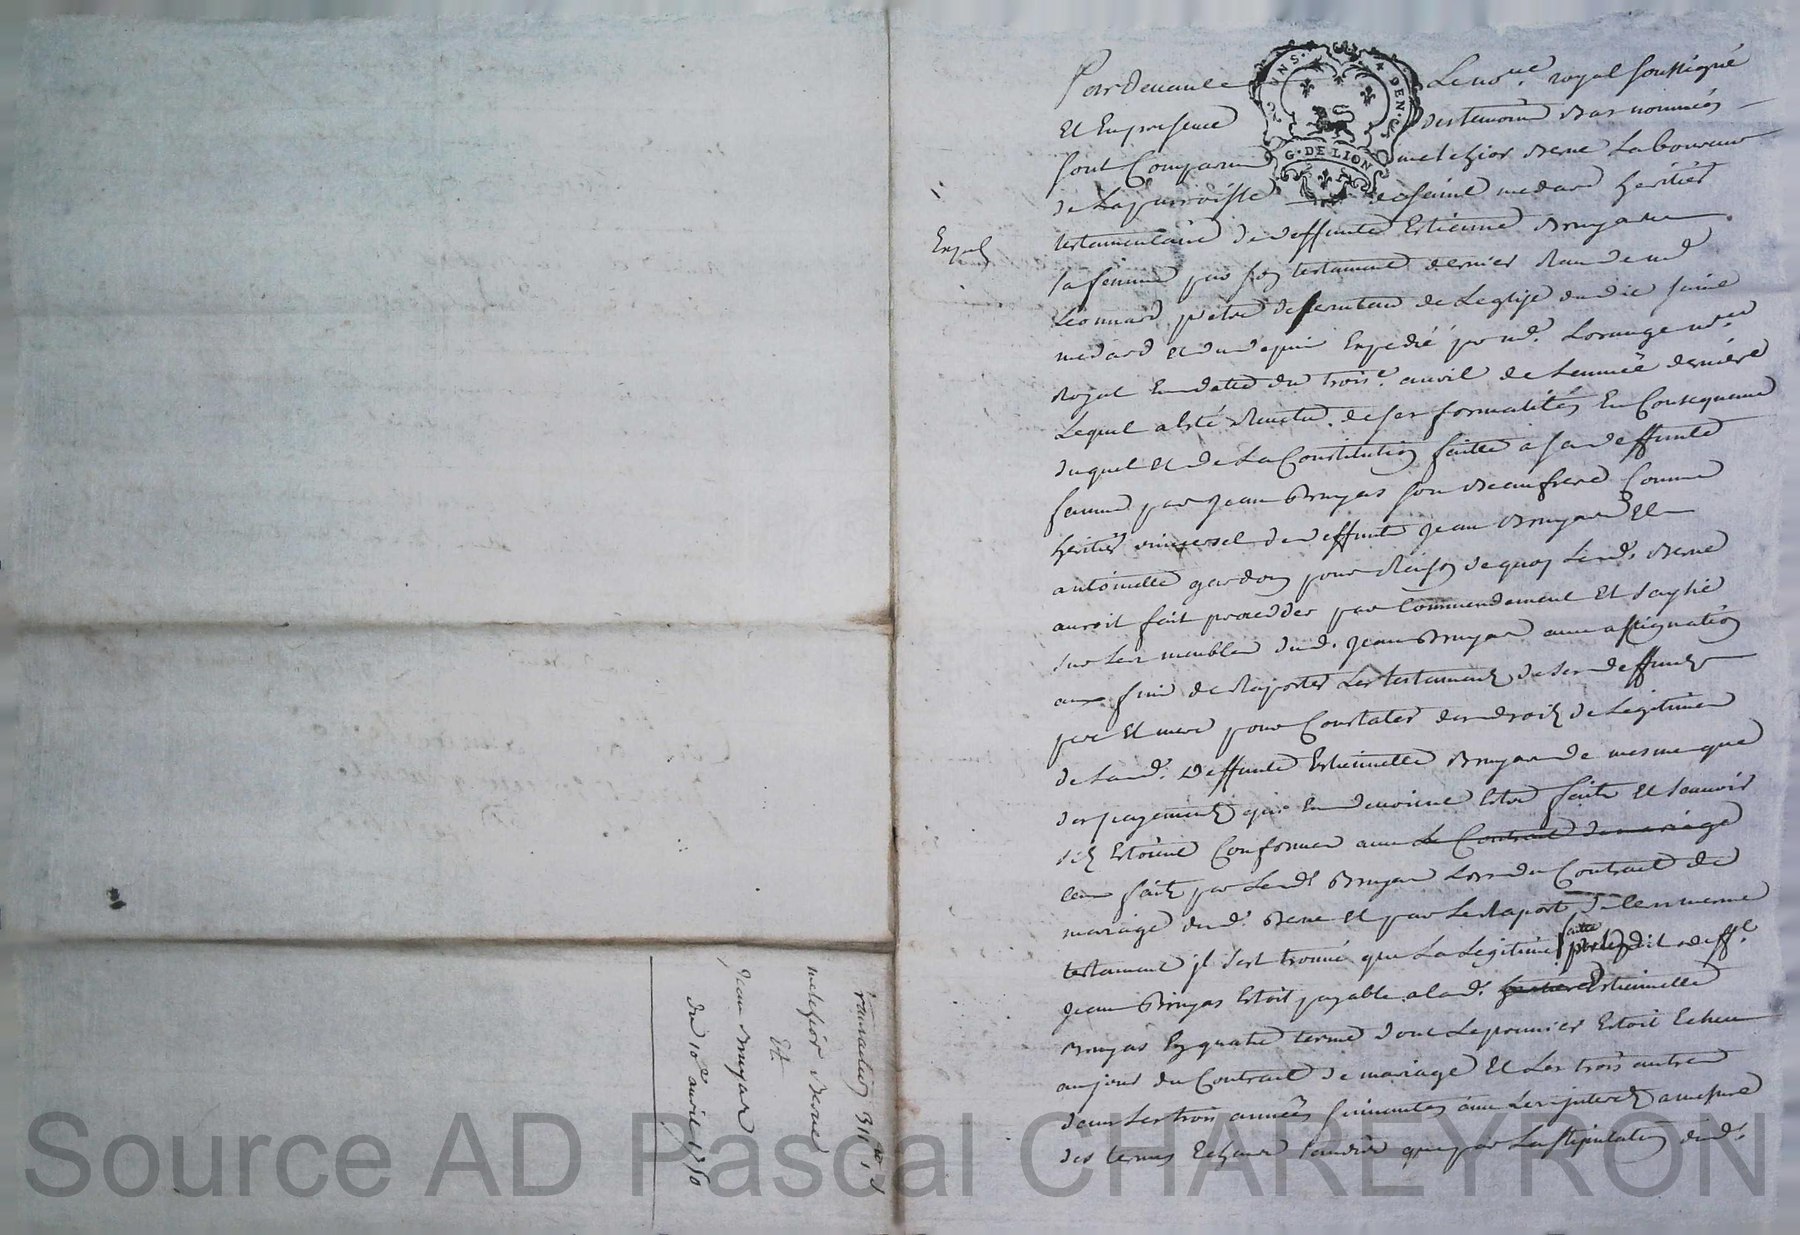 Pardevant Le no.re royal soussigné
Et En presence des temoins Bas nommés
sont Comparu melchior Berne Laboureur
de La parroisse de saint medard heritier
testamentaire de deffunte Estienne Bruyas
sa femme par son testament dernier
Leonnard pretre desserviteur de Leglise dudit saint
medard et du depuis Expedié par m.e Lorange no.re
Royal En datte du trois.e avril de Lannée derniere
Lequel a Esté de ses formalités En Consequence
duquel et de La Constitution faitte a sa deffunte
femme par Jean Bruyas son Beaufrere Comme
heritier universel de deffunts Jean Bruyas Et
antoinette gardon pour Raison de quoy Led. Berne
auroit fait proceder par Commendement Et saysie
sur Les meubles dud. Jean Bruyas avec assignation
aux fins de Raporter Les testaments de ses deffunts
pere Et mere pour Constater des droits de Legitime
de Lad. deffunte Estiennette Bruyas de mesme que
des payements qui En devoient Estre faits Et sçavoir
s'ils Estoient Conformes avec Le Contrat de mariage
ceux faits par Led. Bruyas Lors du Contrat de
mariage dud. Berne et par Le Raport de
testament il s'est trouvé que La Legitime faitte par Ledit deff.t
Jean Bruyas Estoit payable a lad. Estiennette
Bruyas En quatre termes dont Le premier Estoit Echeu
au jour du Contrat de mariage Et Les trois autres
dans Les trois années suivantes avec Les interets a mesure
des termes Echeus tandis que par La stipulation dud.
Exped
transaction
melchior Berne
Et
Jean Bruyas
du 10.e avril 1780
G. DE LION
Source AD Pascal CHAREYRON